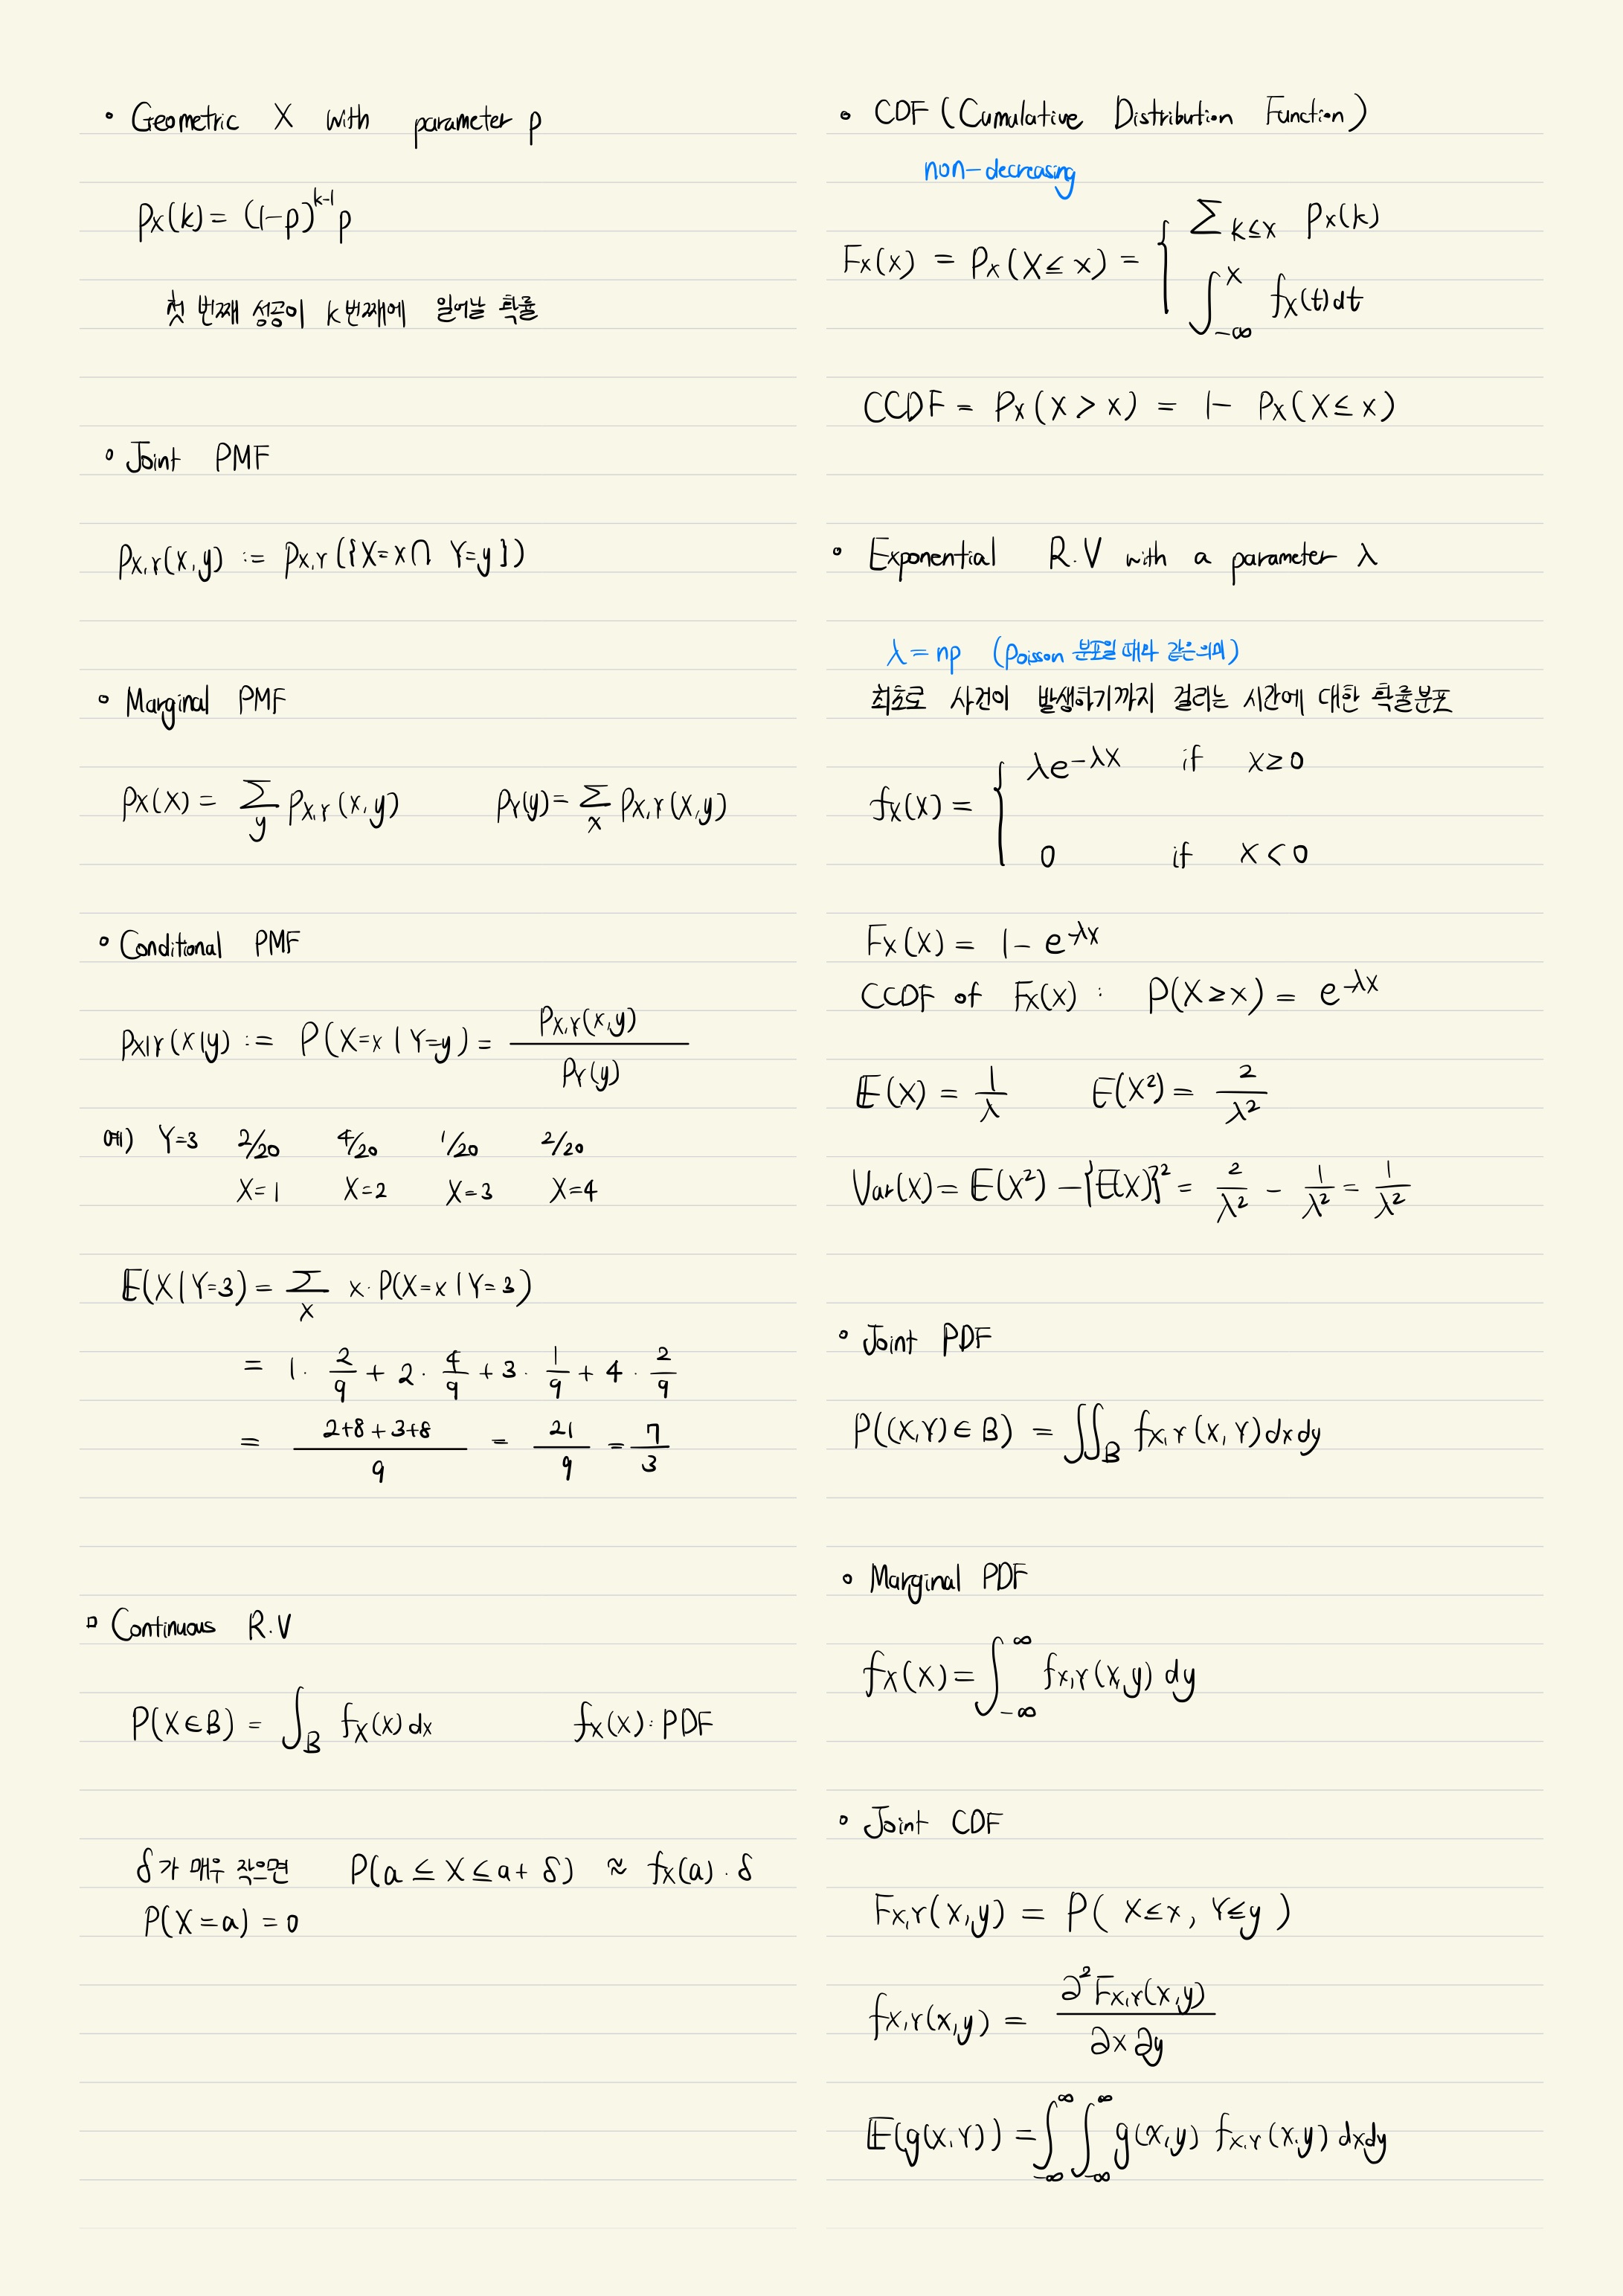 • Geometric X with parameter p
p_X(k) = (1-p)^{k-1} p
첫 번째 성공이 k번째에 일어날 확률
• Joint PMF
p_{X,Y}(x,y) := p_{X,Y}({X=x ∩ Y=y})
• Marginal PMF
p_X(x) = Σ_y p_{X,Y}(x,y)   p_Y(y) = Σ_x p_{X,Y}(x,y)
• Conditional PMF
p_{X|Y}(x|y) := P(X=x | Y=y) = \frac{p_{X,Y}(x,y)}{p_Y(y)}
예) Y=3 2/20 4/20 1/20 2/20
X=1 X=2 X=3 X=4
𝔼(X|Y=3) = Σ_x x·P(X=x | Y=3)
= 1·\frac{2}{9} + 2·\frac{4}{9} + 3·\frac{1}{9} + 4·\frac{2}{9}
= \frac{2+8+3+8}{9} = \frac{21}{9} = \frac{7}{3}
▫ Continuous R.V
P(X∈B) = ∫_B f_X(x)dx   f_X(x): PDF
δ가 매우 작으면 P(a ≤ X ≤ a+δ) ≈ f_X(a)·δ
P(X=a) = 0
• CDF (Cumulative Distribution Function)
non-decreasing
F_X(x) = P_X(X≤x) = { Σ_{k≤x} p_X(k)
∫_{-∞}^{x} f_X(t)dt
CCDF = P_X(X > x) = 1 - P_X(X≤x)
• Exponential R.V with a parameter λ
λ = np (Poisson 분포일 때와 같은의미)
최초로 사건이 발생하기까지 걸리는 시간에 대한 확률분포
f_X(x) = { λe^{-λx} if x≥0
0 if x<0
F_X(x) = 1 - e^{-λx}
CCDF of F_X(x) : P(X≥x) = e^{-λx}
𝔼(X) = \frac{1}{λ}   E(X²) = \frac{2}{λ²}
Var(X) = 𝔼(X²) - {𝔼(X)}² = \frac{2}{λ²} - \frac{1}{λ²} = \frac{1}{λ²}
• Joint PDF
P((X,Y)∈B) = ∬_B f_{X,Y}(x,Y)dxdy
• Marginal PDF
f_X(x) = ∫_{-∞}^{∞} f_{X,Y}(x,y) dy
• Joint CDF
F_{X,Y}(x,y) = P( X≤x, Y≤y )
f_{X,Y}(x,y) = \frac{∂²F_{X,Y}(x,y)}{∂x∂y}
𝔼(g(X,Y)) = ∫_{-∞}^{∞} ∫_{-∞}^{∞} g(x,y) f_{X,Y}(x,y) dxdy